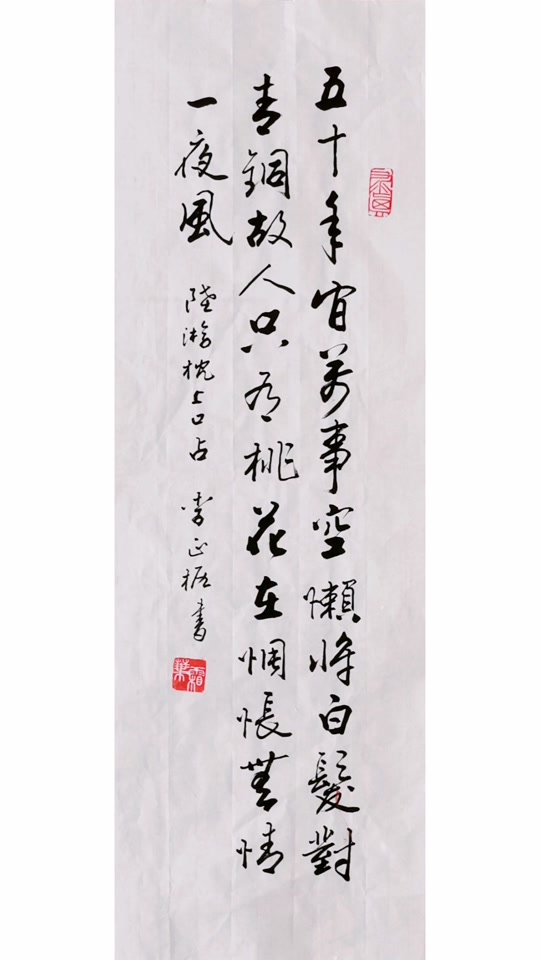 五十年间万事空懒将白髮對
青銅故人只有桃花在惆悵無情
一夜風
陸游枕上口占 李正
書
霜葉